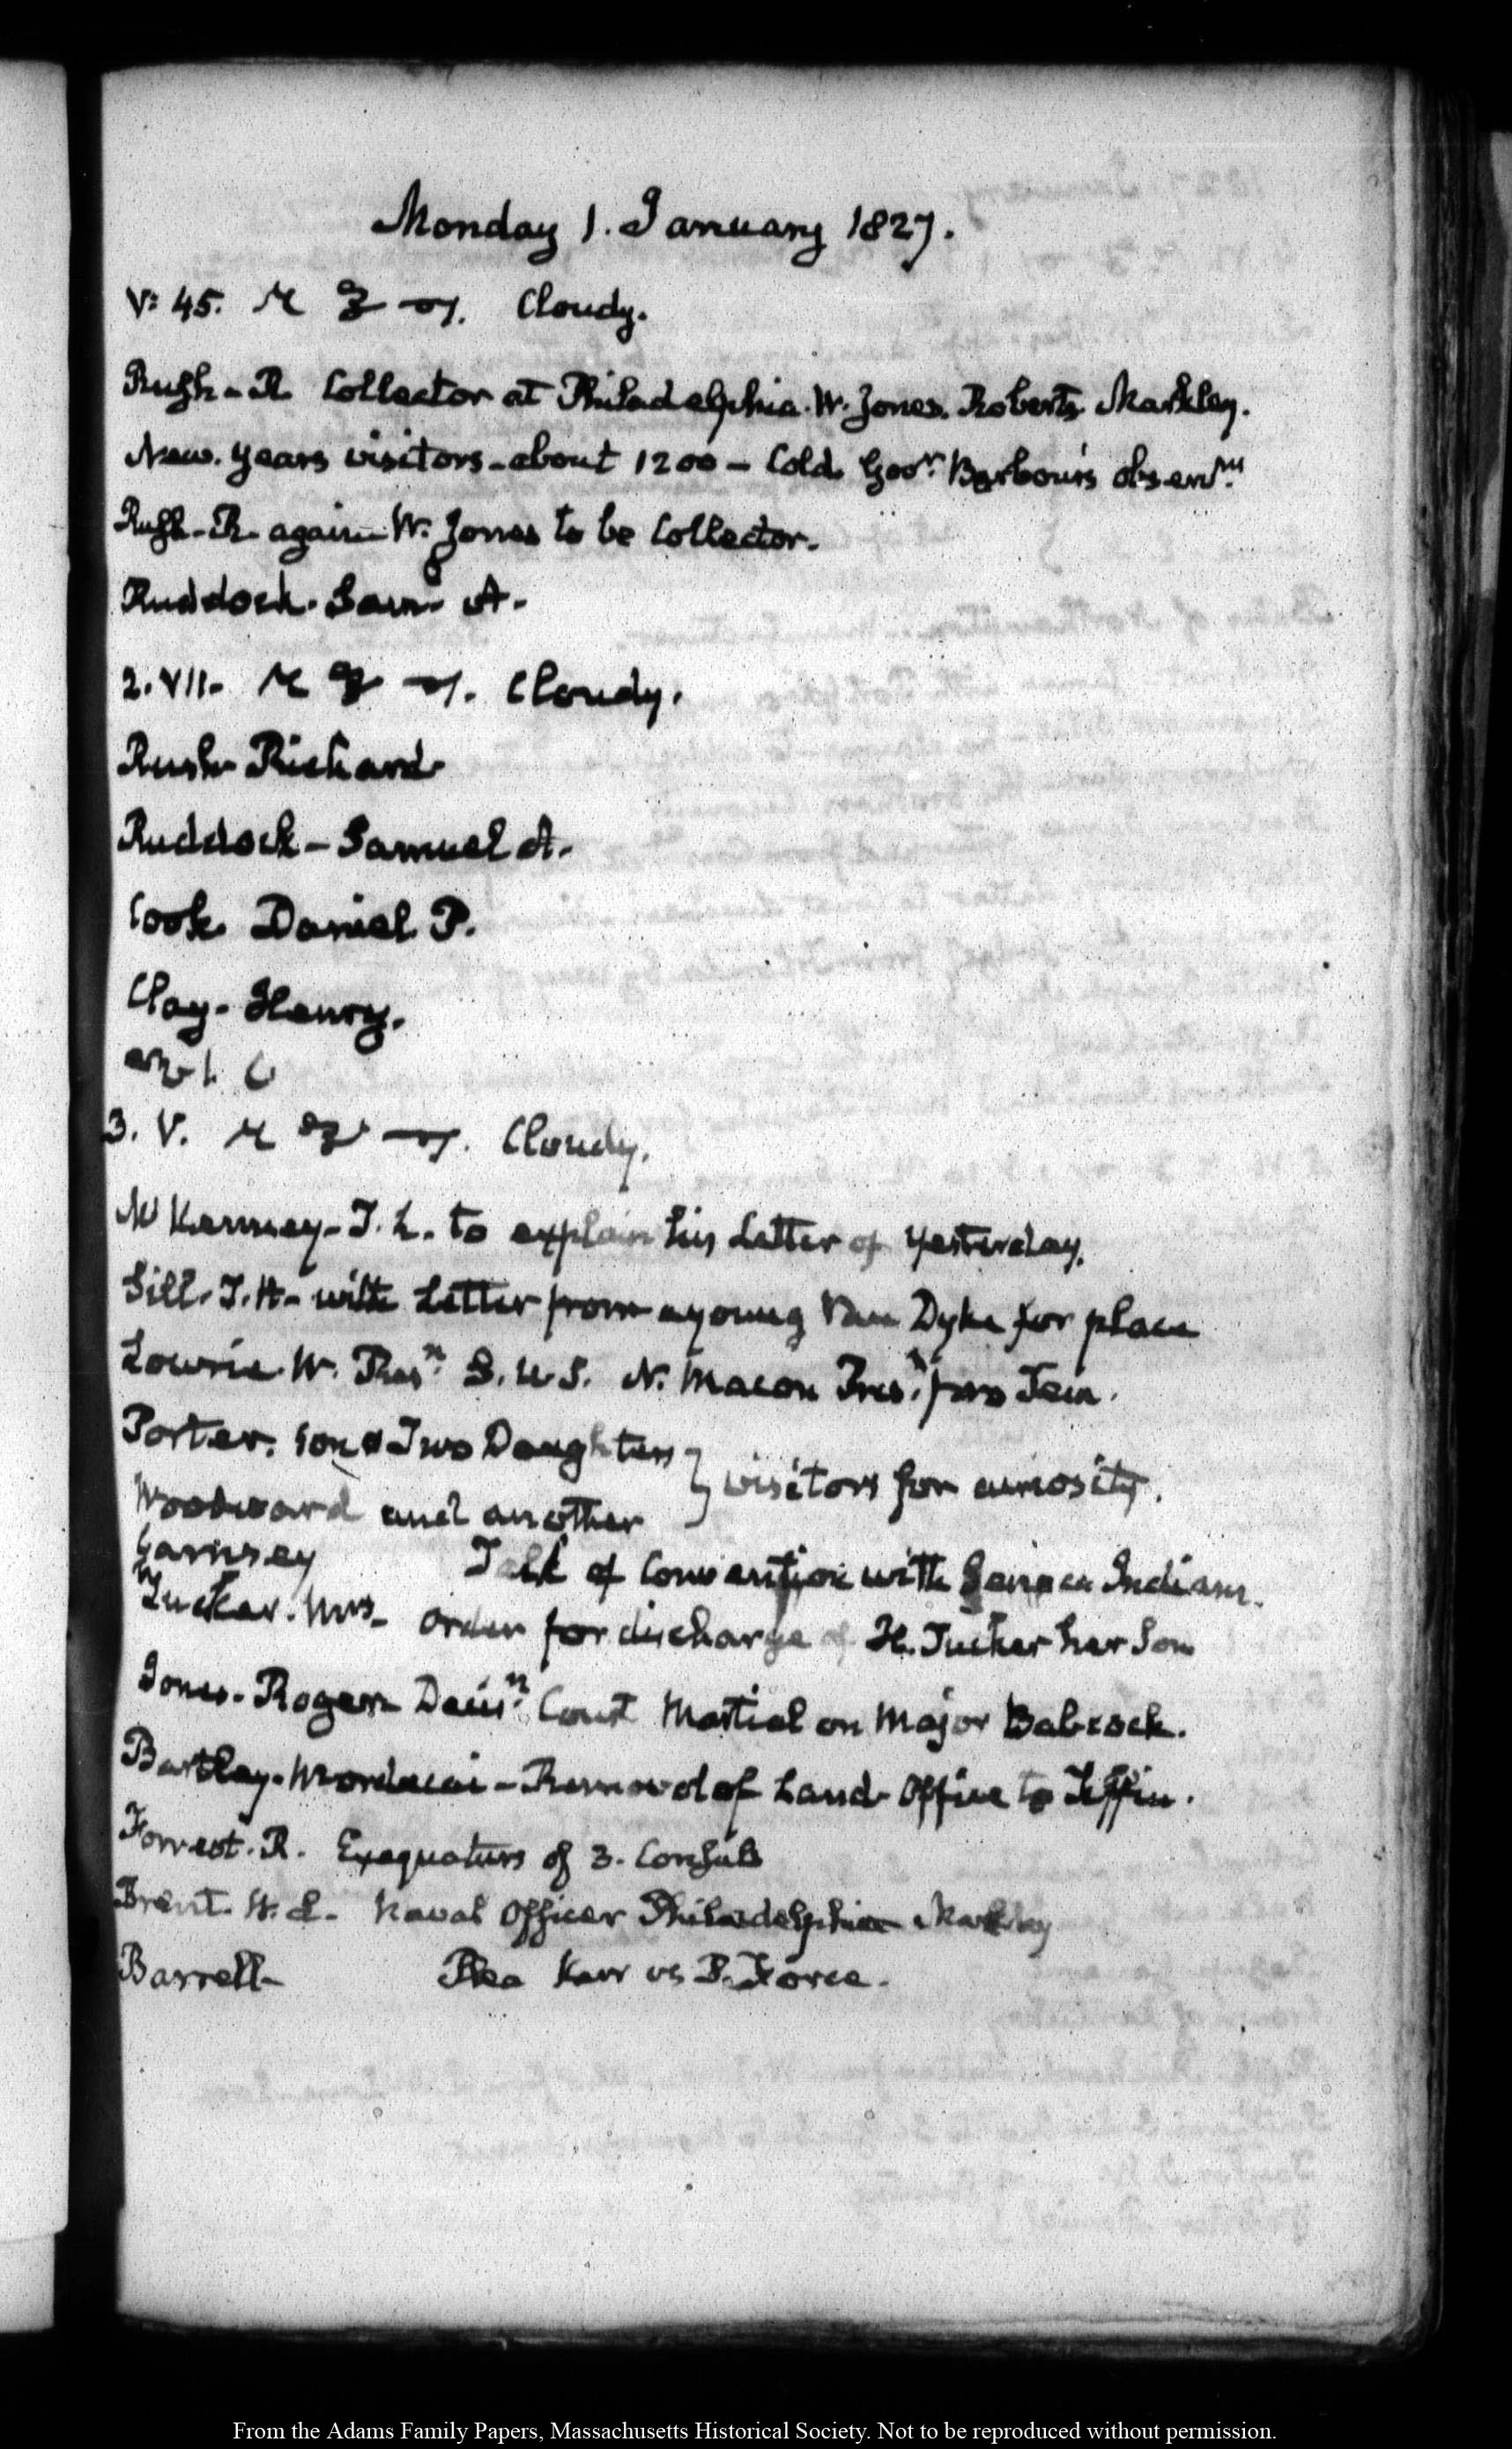 Monday 1. January 1827.
V: 45. Cloudy.
Rush-R Collector at Philadelphia. W. Jones. Roberts Markley.
New. Years visitors-about 1200 - Cold. Govr. Barbour's
Rush-R- again-W. Jones to be Collector.
Ruddock. Saml. A-
2. VII. Cloudy.
Rush Richard
Ruddock-Samuel A.
Cook. Daniel P.
Clay-Henry.
3. V. Cloudy.
McKenney-T. L. to explain his Letter of yesterday.
Sill. T. H- with Letter from a young Van Dyke for place
Lowrie. W. S. U.S. N. Macon Prest. pro Tem.
Porter. Son & Two Daughters } visitors for curiosity.
Woodward and another
Garnsey Talk of Convention with Seneca Indians.
Tucker. Mrs- Order for discharge of H. Tucker her Son
Jones. Roger Court Martial on Major Babcock.
Bartley. Mordecai-Removal of Land Office to Tiffin.
Forrest. R. Exequaturs of 3. Consuls
Brent. W. L. Naval Officer Philadelphia Markley
Barrell- Kerr vs P. Force.
From the Adams Family Papers, Massachusetts Historical Society. Not to be reproduced without permission.